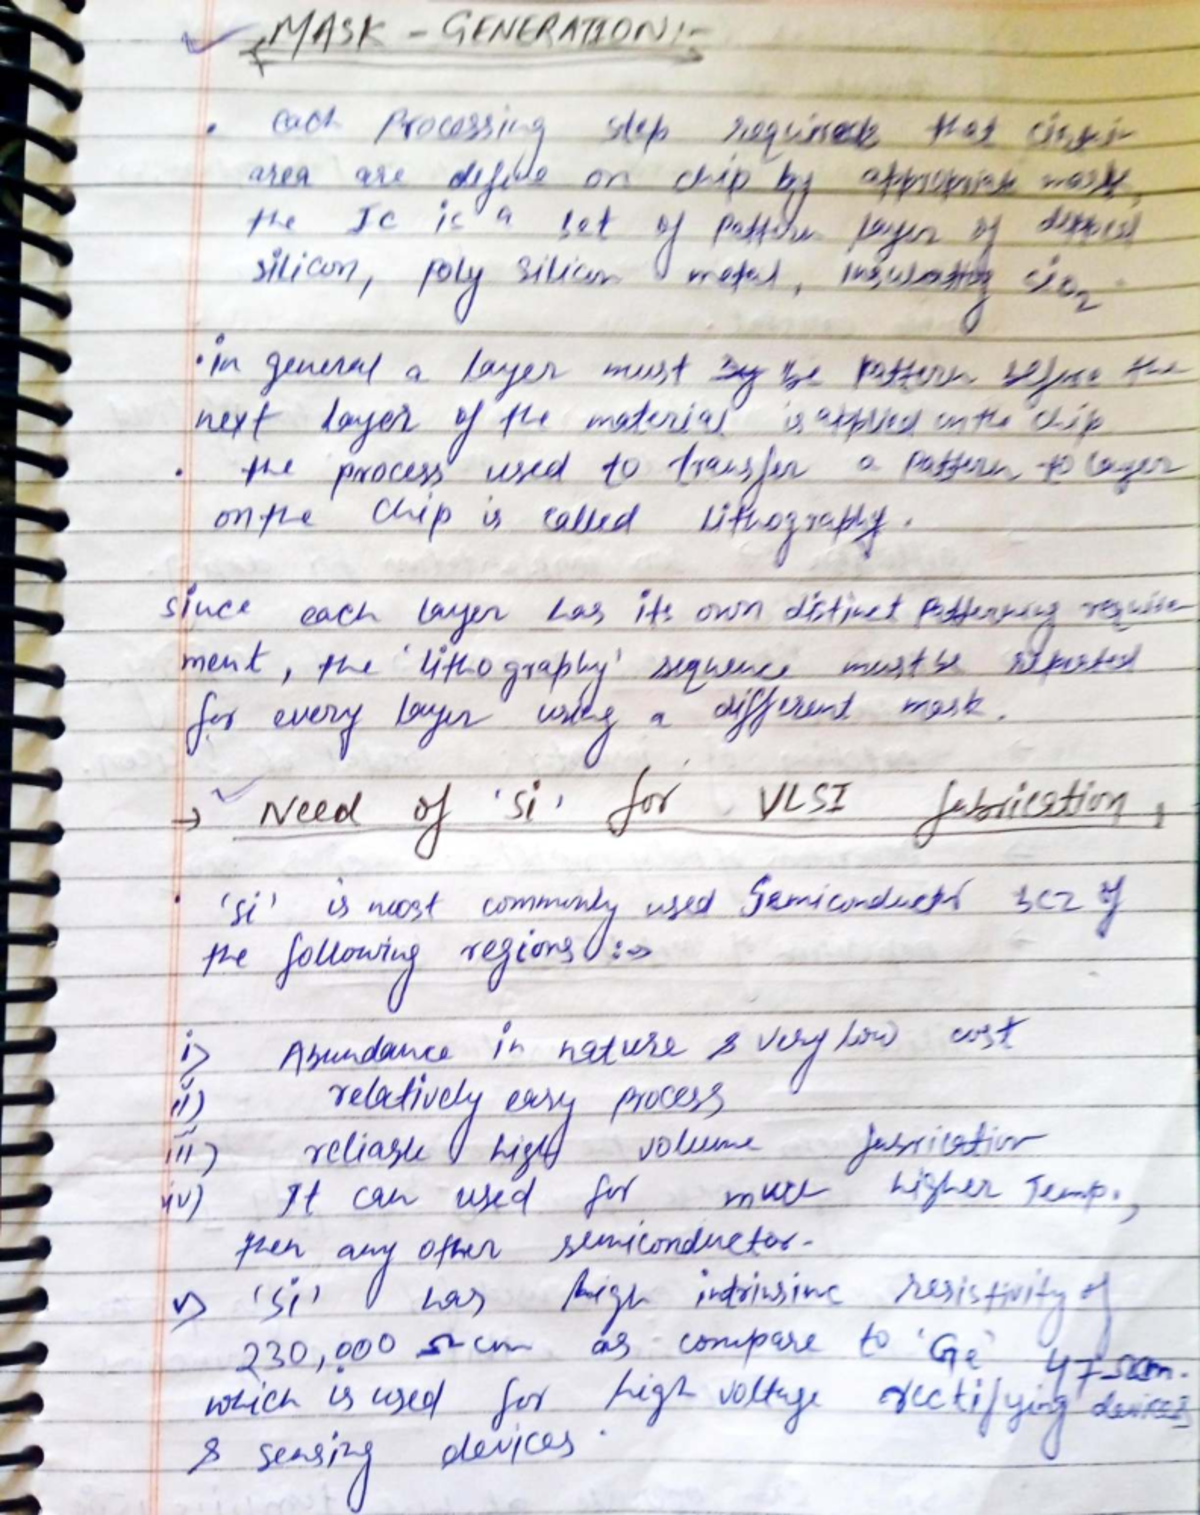 MASK - GENERATION:-
• each Processing step requires that certain
area are define on chip by appropriate mask,
the Ic is a set of pattern layer of dopped
silicon, poly silicon metal, insulating SiO2
• in general a layer must be pattern before the
next layer of the material is applied on the chip
• the process used to transfer a pattern to layer
on the chip is called lithography.
since each layer has its own distinct patterning require
ment, the 'lithography' sequence must be repeated
for every layer using a different mask.
→ Need of 'Si' for VLSI fabrication,
• 'Si' is most commonly used Semiconductor bcz of
the following regions :→
i) Abundance in nature & very low cost
ii) relatively easy process
iii) reliable high volume fabrication
iv) It can used for much higher Temp.,
then any other semiconductor.
v) 'Si' has high intrinsic resistivity of
230,000 Ωcm as compare to 'Ge' 47 Ωcm.
which is used for high voltage rectifying devices
& sensing devices.